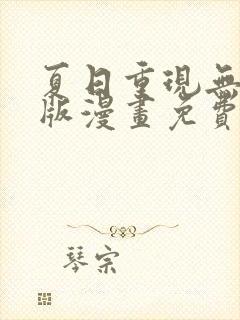 夏日重現無
版漫畫免費
琴宗